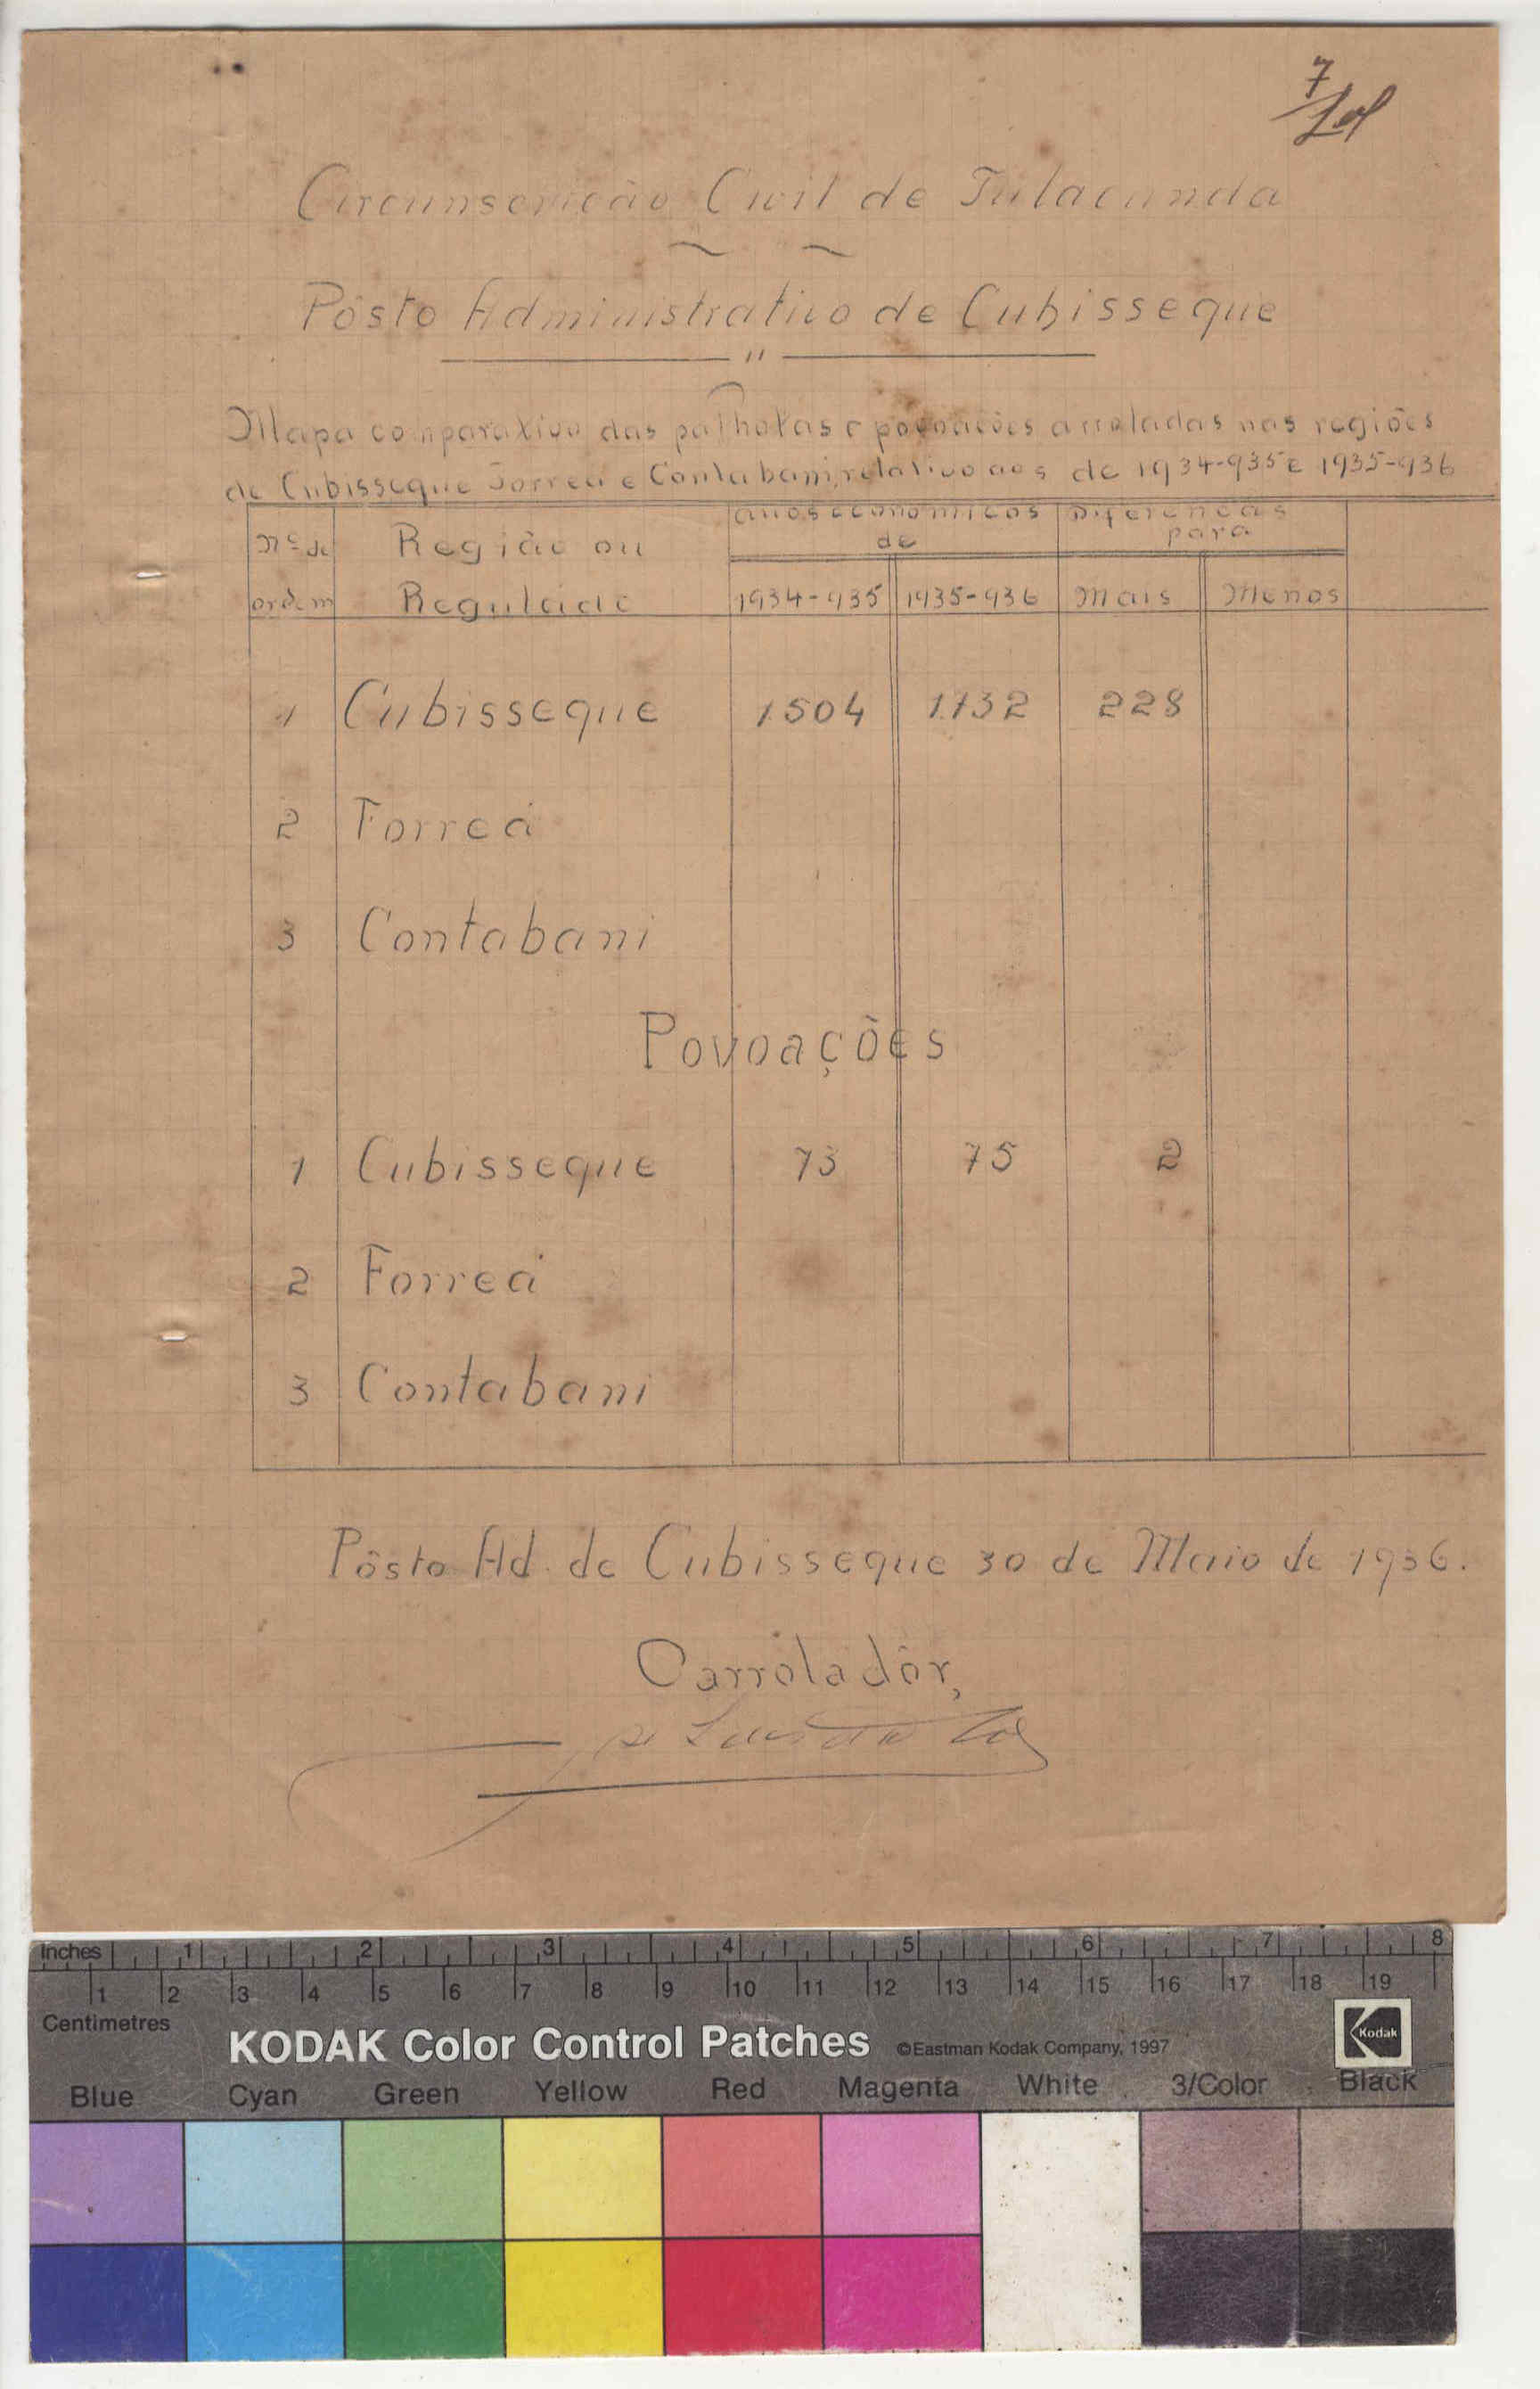 7
Circunscrição Civil de Fulacunda
Pôsto Administrativo de Cubisseque
"
Mapa comparativo das palhotas e povoações arroladas nas regiões
de Cubisseque Forreá e Contabani, relativo aos de 1934-935 e 1935-936
Nº de ordem Região ou Regulado anos economicos de Diferenças para
1934-935 1935-936 Mais Menos
1 Cubisseque 1.504 1.732 228
2 Forreá
3 Contabani
Povoações
1 Cubisseque 73 75 2
2 Forreá
3 Contabani
Pôsto Ad. de Cubisseque 30 de Maio de 1936.
Oarroladôr,
Inches 1 2 3 4 5 6 7 8
1 2 3 4 5 6 7 8 9 10 11 12 13 14 15 16 17 18 19
Centimetres
KODAK Color Control Patches ©Eastman Kodak Company, 1997 Kodak
Blue Cyan Green Yellow Red Magenta White 3/Color Black